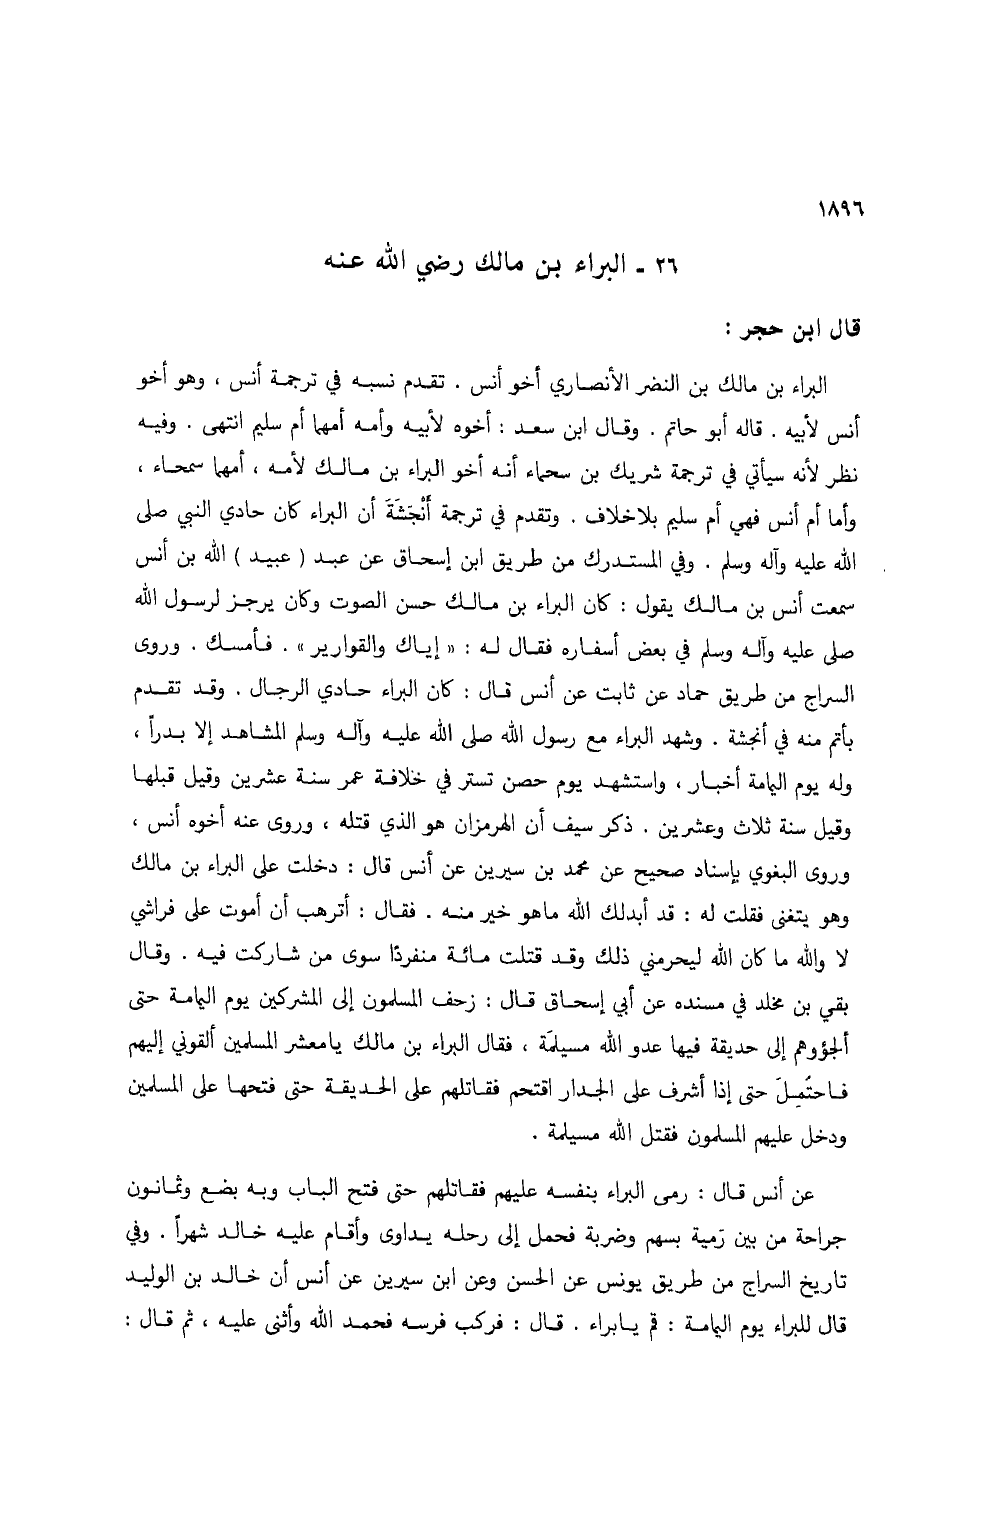 ١٨٩٦
٢٦ - البراء بن مالك رضي الله عنه
قال ابن حجر :
البراء بن مالك بن النضر الأنصاري أخو أنس . تقدم نسبه في ترجمة أنس ، وهو أخو
أنس لأبيه . قاله أبو حاتم . وقال ابن سعد : أخوه لأبيه وأمه أمها أم سليم انتهى . وفيه
نظر لأنه سيأتي في ترجمة شريك بن سحماء أنه أخو البراء بن مالك لأمه ، أمها سمحاء ،
وأما أم أنس فهي أم سليم بلاخلاف . وتقدم في ترجمة أَنْجَشَةَ أن البراء كان حادي النبي صلى
الله عليه وآله وسلم . وفي المستدرك من طريق ابن إسحاق عن عبد ( عبيد ) الله بن أنس
سمعت أنس بن مالك يقول : كان البراء بن مالك حسن الصوت وكان يرجز لرسول الله
صلى عليه وآله وسلم في بعض أسفاره فقال له : « إياك والقوارير » . فأمسك . وروى
السراج من طريق حماد عن ثابت عن أنس قال : كان البراء حادي الرجال . وقد تقدم
بأتم منه في أنجشة . وشهد البراء مع رسول الله صلى الله عليه وآله وسلم المشاهد إلا بدراً ،
وله يوم اليمامة أخبار ، واستشهد يوم حصن تستر في خلافة عمر سنة عشرين وقيل قبلها
وقيل سنة ثلاث وعشرين . ذكر سيف أن الهرمزان هو الذي قتله ، وروى عنه أخوه أنس ،
وروى البغوي بإسناد صحيح عن محمد بن سيرين عن أنس قال : دخلت على البراء بن مالك
وهو يتغنى فقلت له : قد أبدلك الله ماهو خير منه . فقال : أترهب أن أموت على فراشي
لا والله ما كان الله ليحرمني ذلك وقد قتلت مائة منفردًا سوى من شاركت فيه . وقال
بقي بن مخلد في مسنده عن أبي إسحاق قال : زحف المسلمون إلى المشركين يوم اليمامة حتى
ألجؤوهم إلى حديقة فيها عدو الله مسيلمَة ، فقال البراء بن مالك يامعشر المسلمين ألقوني إليهم
فاحتُمِلَ حتى إذا أشرف على الجدار اقتحم فقاتلهم على الحديقة حتى فتحها على المسلمين
ودخل عليهم المسلمون فقتل الله مسيلمة .
عن أنس قال : رمى البراء بنفسه عليهم فقاتلهم حتى فتح الباب وبه بضع وثمانون
جراحة من بين رَمية بسهم وضربة فحمل إلى رحله يداوى وأقام عليه خالد شهراً . وفي
تاريخ السراج من طريق يونس عن الحسن وعن ابن سيرين عن أنس أن خالد بن الوليد
قال للبراء يوم اليمامة : قم يابراء . قال : فركب فرسه فحمد الله وأثنى عليه ، ثم قال :